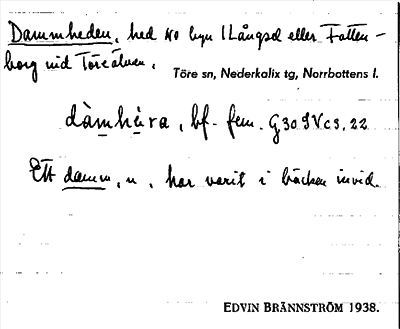 Dammheden, hed NO byn Långsel eller Fatten-
borg vid Töreälven.
Töre sn, Nederkalix tg, Norrbottens l.
dàmhèra, bf. fem. G30 9Vc3, 22
Ett damm, n, har varit i bäcken invid.
EDVIN BRÄNNSTRÖM 1938.